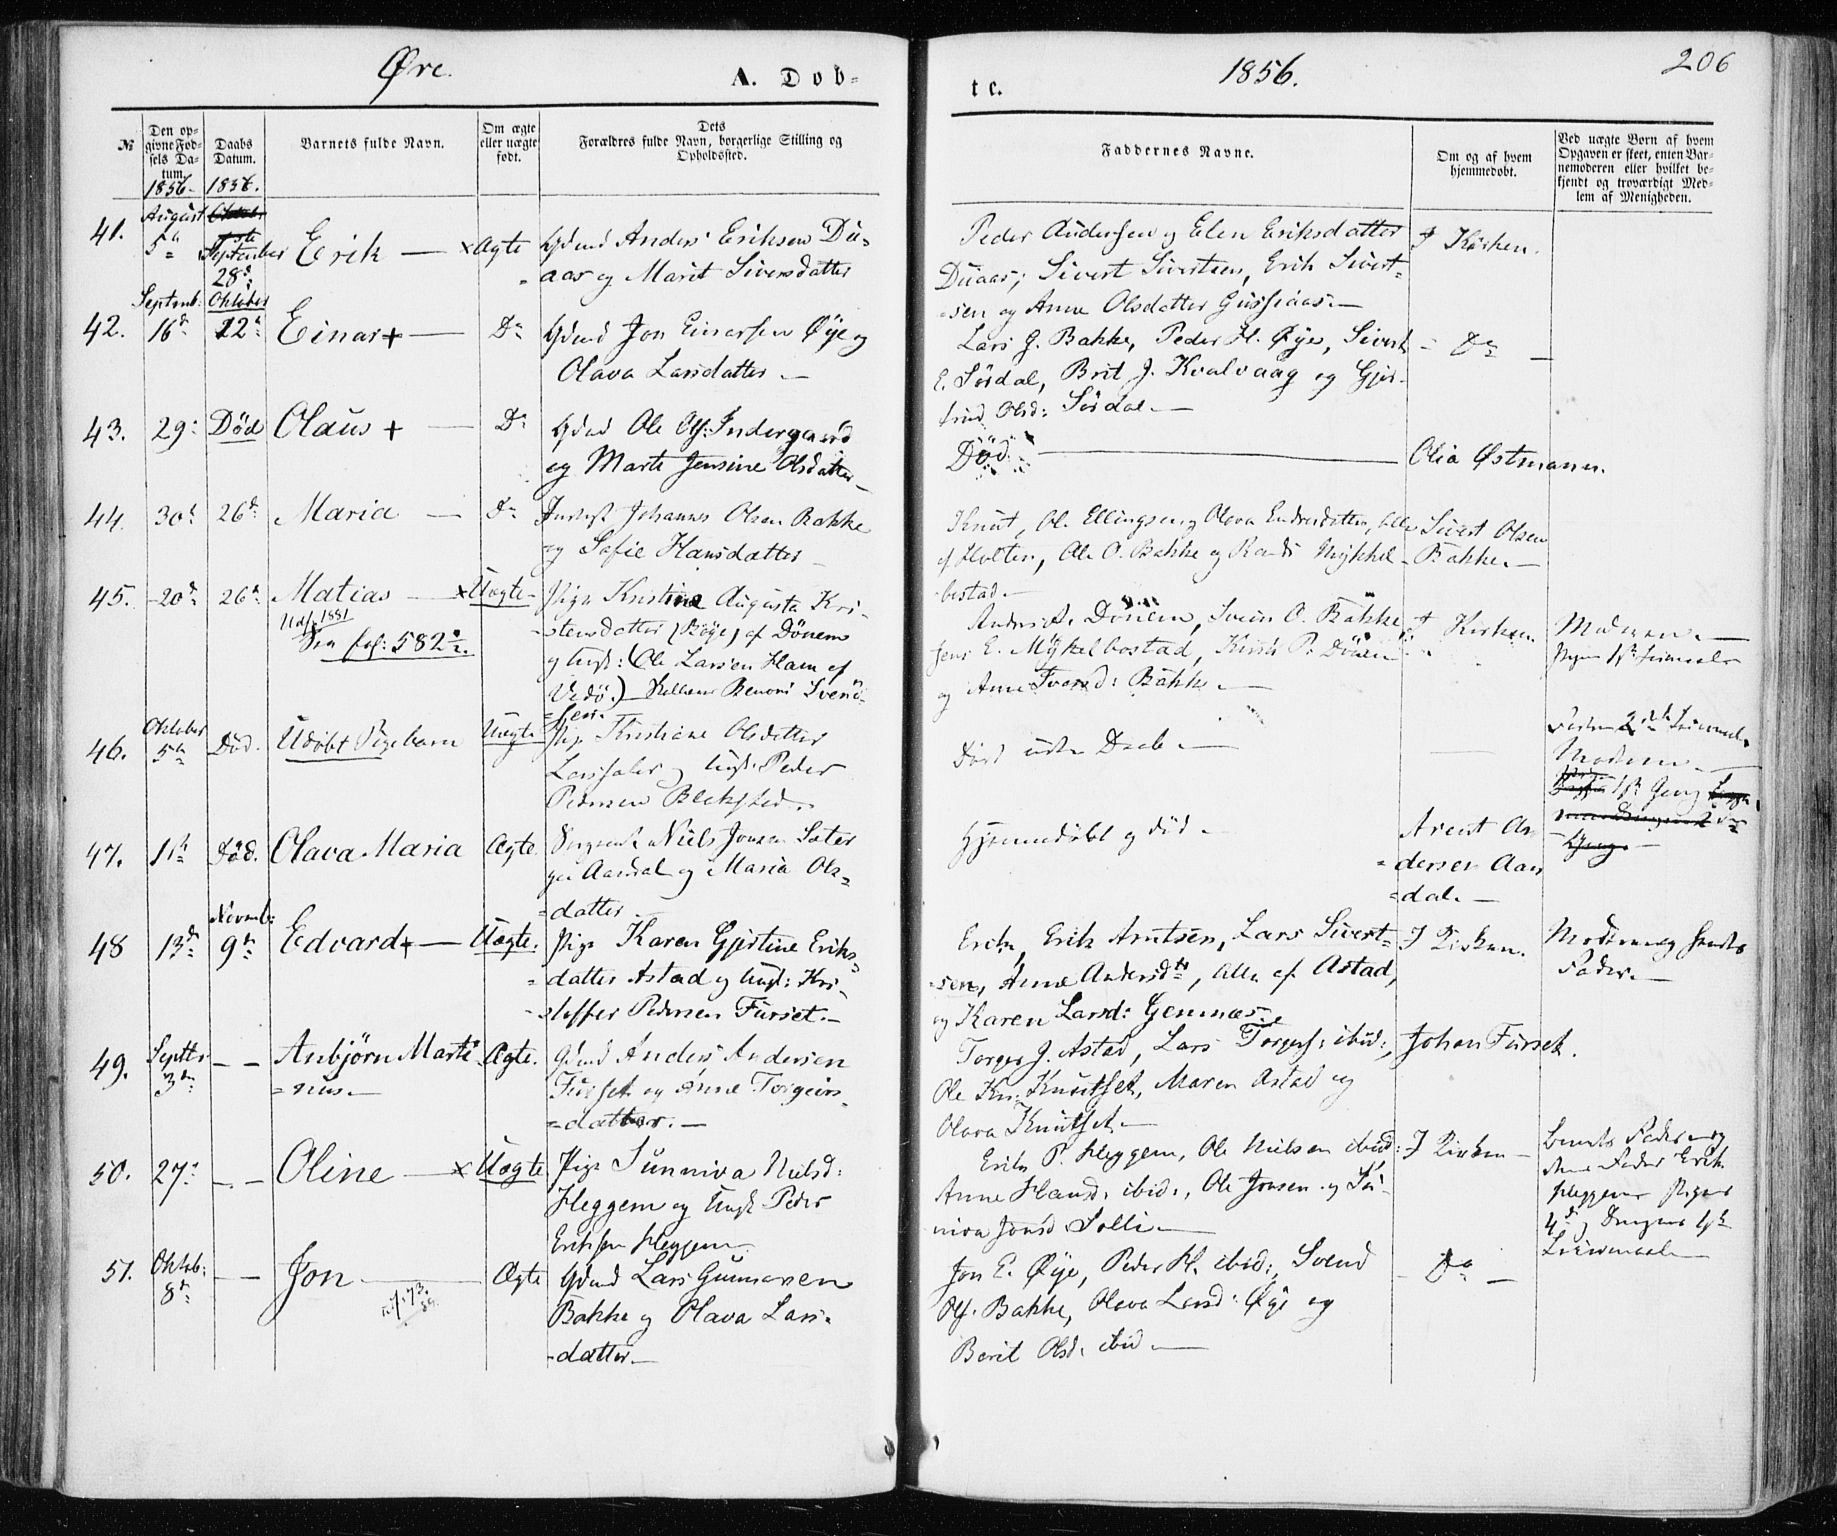 Øre.
A. Dob-
te.
1856.
206
№
Den op-
givne Fød-
sels Da-
tum.
Daabs
Datum.
Barnets fulde Navn.
Om ægte
eller uægte
født.
Dets
Forældres fulde Navn, borgerlige Stilling og
Opholdssted.
Faddernes Navne.
Om og af hvem
hjemmedøbt.
Ved uægte Børn af hvem
Opgaven er skeet, enten Bar-
nemoderen eller hvilket be-
kjendt og troværdigt Med-
lem af Menigheden.
1856. 1856.
41.
August
5te
September
28de
Erik — x
Ægte
Gdmd Anders Eriksen Du-
aas og Marit Siversdatter
Peder Andersen og Elen Eriksdatter
Duaas; Sivert Sivertsen, Erik Sivert-
sen og Anne Olsdatter Gussiaas. —
I Kirken.
42.
Septemb:
16de
Oktober
12te
Einar + —
Do
Gdmd Jon Einarsen Øye og
Olava Larsdatter —
Lars J. Bakke, Peder H. Øye, Sivert
E. Sørdal, Brit J. Kvalvaag og Gjer-
trud Olsd: Sørdal. —
– Do —
43.
29:
Død
Olaus + —
Do
Gdmd Ole Ols: Indergaard
og Marte Jensine Olsdatter —
Død. —
Olia Østmann.
44.
30te
26de
Maria —
Do
Inderst Johannes Olsen Bakke
og Sofie Hansdatter —
Knut, Ol. Ellingsen, Olava Endresdatter, alle
af Holten, Ole O. Bakke og Randi Mykkel-
bostad —
Sivert Olsen
Bakke. —
45.
20de
26de
Matias — x
Udf. 1881
See fol: 582½.
Uægte
Pige Kristine Augusta Kri-
stensdatter (Bøge) af Dönem
og Ungk: (Ole Larsen Ham af
Vedö.) — Benoni Svend-
sen.
Anders A. Dönem, Svein O. Bakke
Jens E. Mykelbostad, Kirsti P. Dönem
og Anne Iversd: Bakke. —
I Kirken.
Moderen. —
Pigens 1ste Leiermaal
46.
Oktober
5te
Død.
Udøbt Pigebarn
Uægte
Pige Kristiane Olsdatter
og Ungk. Peder
Pedersen Blekstad.
Død uden Daab. —
Faderen 2det Leiermaal.
Moderen —
1ste Gang
47.
11te
Død.
Olava Maria
Ægte.
Niels Jonsen Sæter
Aandal og Maria Ols-
datter
Hjemmedøbt og død —
Arent An-
dersen Aan-
dal. —
48
13de
Novemb:
9de
Edvard + —
Uægte.
Pige Karen Gjertine Eriks-
datter Astad og Ungk: Kri-
stoffer Pedersen Furset. —
Erik, Erik Arntsen, Lars Sivert-
sen, Anne Andersdtr, alle af Astad,
og Karen Larsd: Gemnæs.
I Kirken.
Moderen og Hendes
Fader. —
49.
Septbr
3die
– –
Anbjörn Marti-
nus —
Ægte.
Gdmd Anders Andersen
Furset og Anne Torgeirs-
datter. —
Torger J. Astad, Lars Torgers: ibid:,
Ole Kn: Knutset, Maren Astad og
Olava Knutset —
Johan Furset.
50.
27de
–.–
Oline — x
Uægte
Pige Sunniva Nielsd:
Heggem og Ungk Peder
Eriksen Heggem
Erik P. Heggem, Ole Nielsen ibid:
Anne Hansd: ibid:, Ole Jonsen og Su-
niva Jonsd Solli —
I Kirken —
Barnets Fader og
dens Fader Erik
Heggem. Pigens
4de og Drengens 1ste
Leiermaal —
51.
Oktob:
8de
– –
Jon —
Ægte
Gdmd Lars Gunnarsen
Bakke og Olava Lars-
datter —
Jon E. Øye, Peder H. ibid:, Svend
Ols. Bakke, Olava Larsd: Øye og
Berit Olsd. ibid —
– Do —